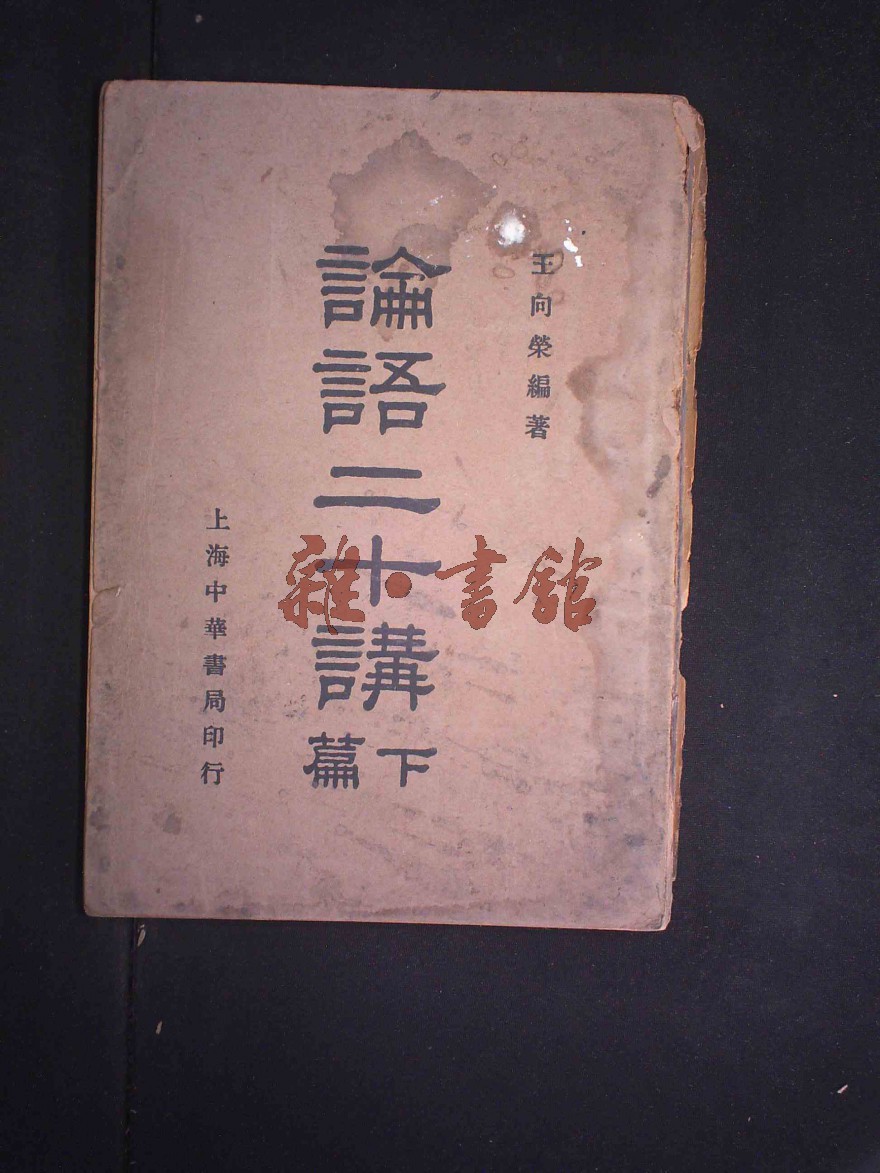 王向榮編著
論語二十講
下篇
上海中華書局印行
雜·書館